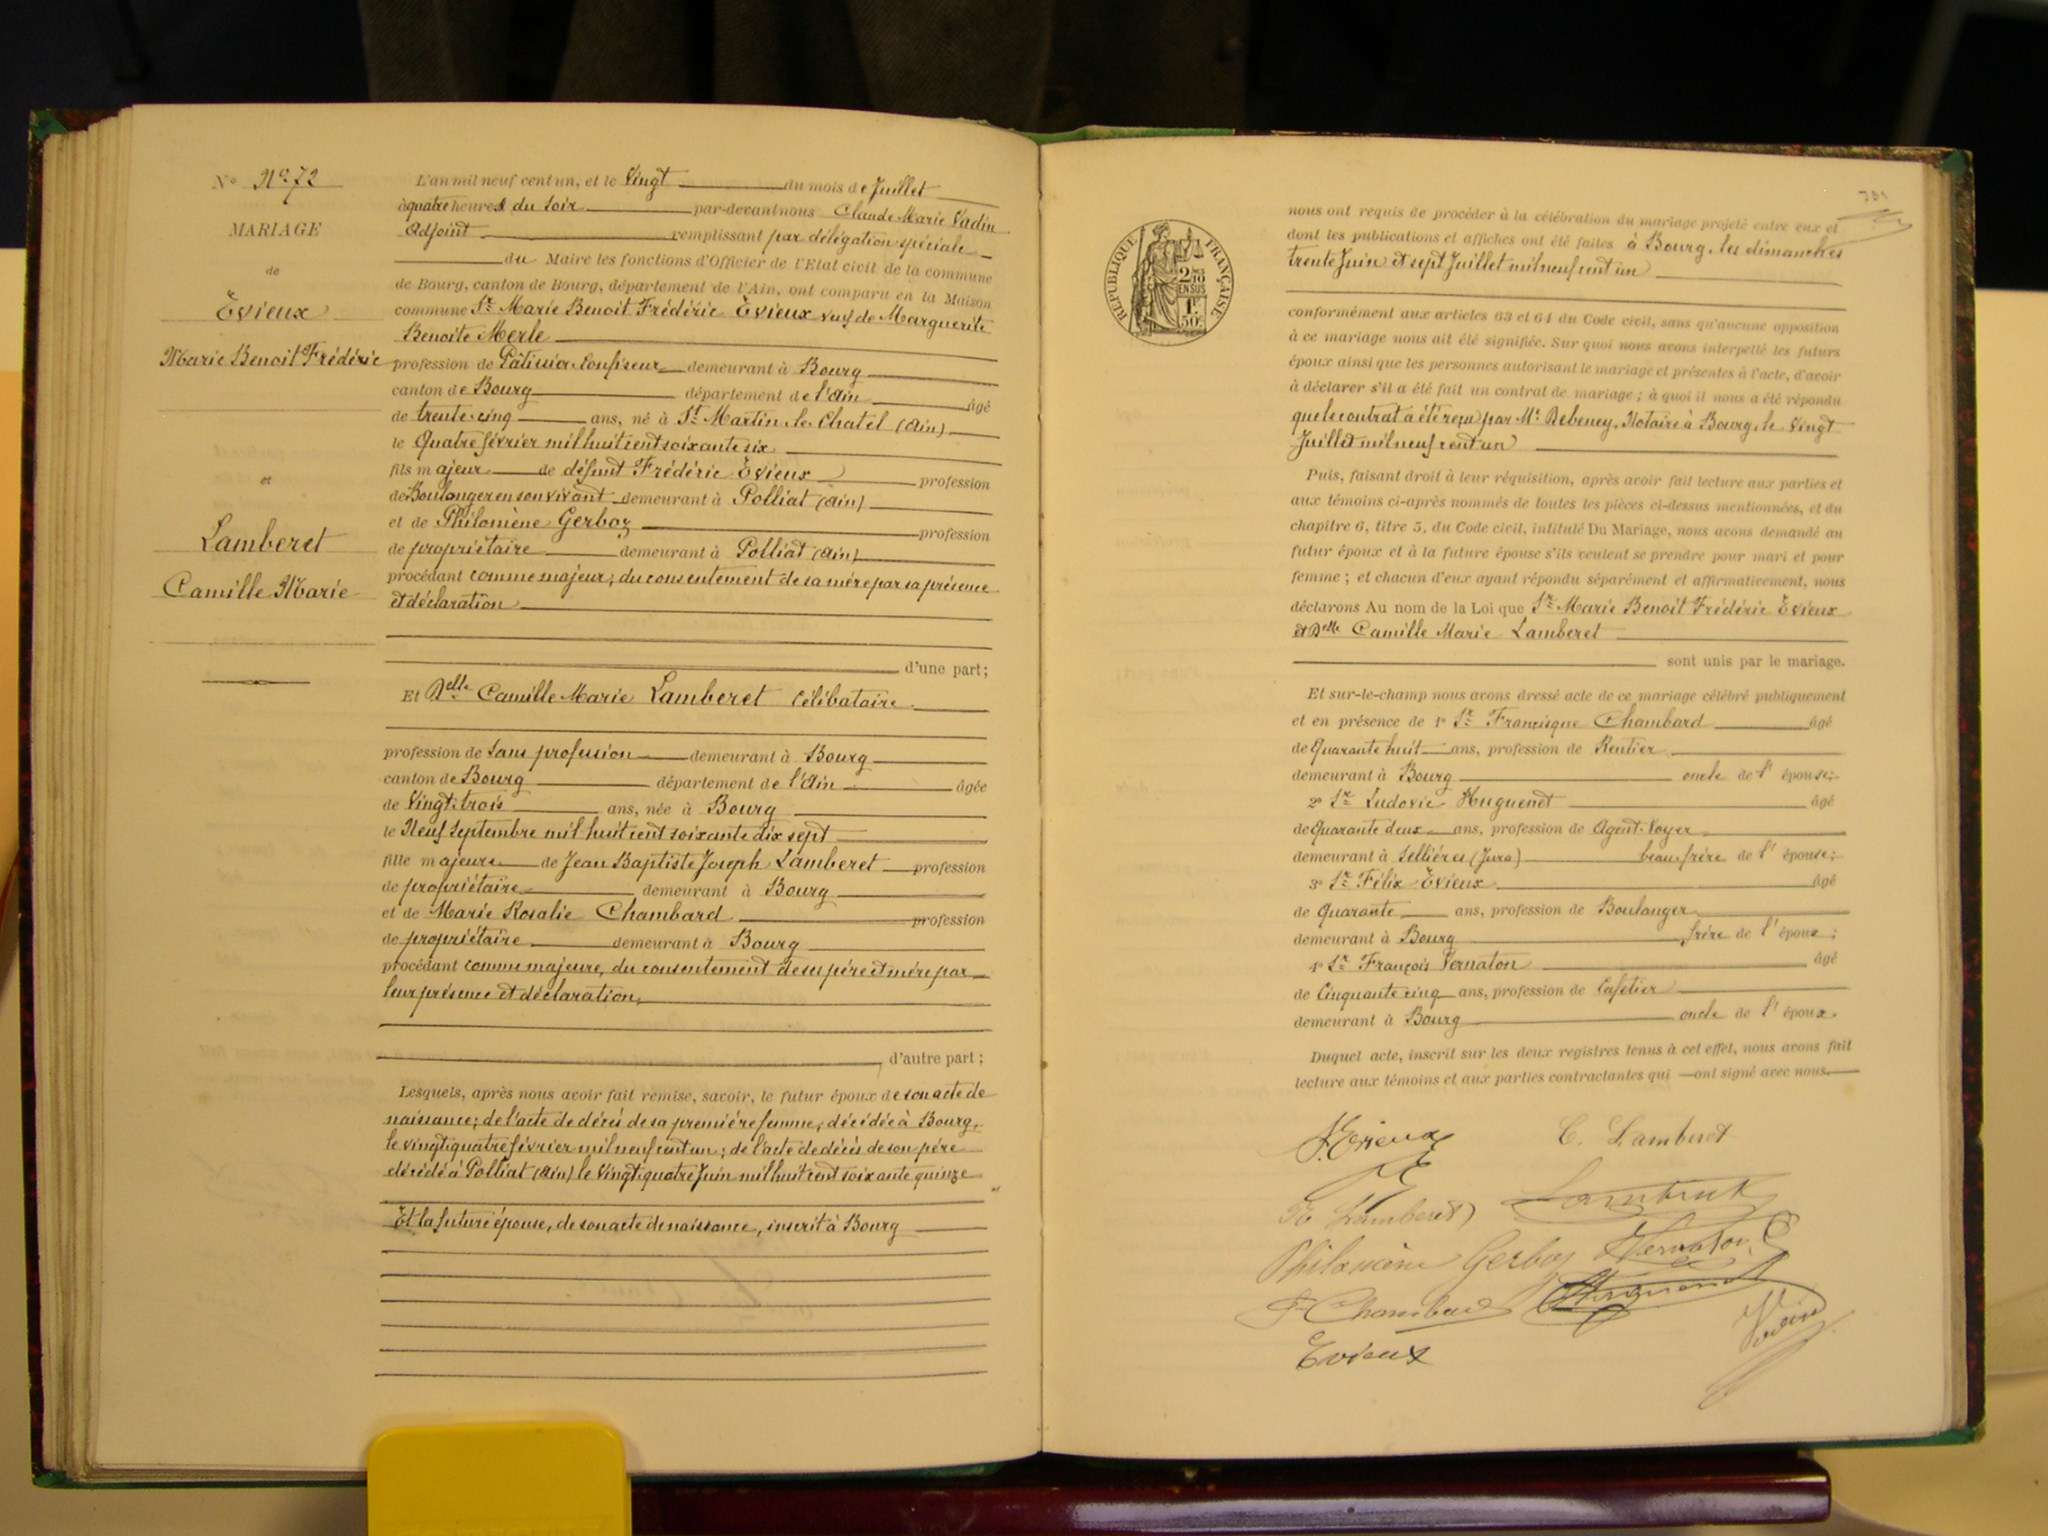 N° N° 72
MARIAGE
de
Èvieux
Marie Benoit Frédéric
et
Lamberet
Camille Marie
L'an mil neuf cent un, et le Vingt du mois de Juillet
à quatre heures du soir par-devant nous Claude Marie Vadin
Adjoint remplissant par délégation spéciale
du Maire les fonctions d'Officier de l'Etat civil de la commune
de Bourg, canton de Bourg, département de l'Ain, ont comparu en la Maison
commune Sr Marie Benoit Frédéric Èvieux veuf de Marguerite
Benoite Merle
profession de Pâtissier Confiseur demeurant à Bourg
canton de Bourg département de l'Ain âgé
de trente-cinq ans, né à St Martin-le-Chatel (Ain)
le Quatre février mil huit cent soixante six
fils majeur de défunt Frédéric Èvieux profession
de Boulanger en son vivant demeurant à Polliat (Ain)
et de Philomène Gerboz profession
de propriétaire demeurant à Polliat (Ain)
procédant comme majeur; du consentement de sa mère par sa présence
et déclaration
d'une part;
Et Delle Camille Marie Lamberet Célibataire
profession de Sans profession demeurant à Bourg
canton de Bourg département de l'Ain âgée
de Vingt-trois ans, née à Bourg
le Neuf Septembre mil huit cent soixante dix sept
fille majeure de Jean Baptiste Joseph Lamberet profession
de propriétaire demeurant à Bourg
et de Marie Rosalie Chambard profession
de propriétaire demeurant à Bourg
procédant comme majeure, du consentement de ses père et mère par
leur présence et déclaration,
d'autre part;
Lesquels, après nous avoir fait remise, savoir, le futur époux de son acte de
naissance; de l'acte de décès de sa première femme, décédée à Bourg,
le vingt quatre février mil neuf cent un; de l'acte de décès de son père
décédé à Polliat (Ain) le Vingt-quatre Juin mil huit cent soixante quinze
Et la future épouse, de son acte de naissance, inscrit à Bourg
RÉPUBLIQUE FRANÇAISE
2/10
EN SUS
1F
50c
nous ont requis de procéder à la célébration du mariage projeté entre eux et
dont les publications et affiches ont été faites à Bourg, les dimanches
trente Juin et sept Juillet mil neuf cent un
conformément aux articles 63 et 64 du Code civil, sans qu'aucune opposition
à ce mariage nous ait été signifiée. Sur quoi nous avons interpellé les futurs
époux ainsi que les personnes autorisant le mariage et présentes à l'acte, d'avoir
à déclarer s'il a été fait un contrat de mariage; à quoi il nous a été répondu
que le contrat a été reçu par Me Debeney, Notaire à Bourg, le Vingt
Juillet mil neuf cent un
Puis, faisant droit à leur réquisition, après avoir fait lecture aux parties et
aux témoins ci-après nommés de toutes les pièces ci-dessus mentionnées, et du
chapitre 6, titre 5, du Code civil, intitulé Du Mariage, nous avons demandé au
futur époux et à la future épouse s'ils veulent se prendre pour mari et pour
femme; et chacun d'eux ayant répondu séparément et affirmativement, nous
déclarons Au nom de la Loi que Sr Marie Benoit Frédéric Èvieux
et Delle Camille Marie Lamberet
sont unis par le mariage.
Et sur-le-champ nous avons dressé acte de ce mariage célébré publiquement
et en présence de 1° Sr Francisque Chambard âgé
de Quarante huit ans, profession de Rentier
demeurant à Bourg oncle de l'épouse;
2° Sr Ludovic Huguenet âgé
de Quarante deux ans, profession de Agent-Voyer
demeurant à Sellières (Jura) beau-frère de l'épouse;
3° Sr Félix Èvieux âgé
de Quarante ans, profession de Boulanger
demeurant à Bourg frère de l'époux;
4° Sr François Vernaton âgé
de Cinquante cinq ans, profession de Cafetier
demeurant à Bourg oncle de l'époux.
Duquel acte, inscrit sur les deux registres tenus à cet effet, nous avons fait
lecture aux témoins et aux parties contractantes qui ont signé avec nous.
F. Evieux C. Lamberet
R. Lamberet Lamberet
Philomène Gerboz Vernaton
F. Chambard Huguenet
Evieux Vadin